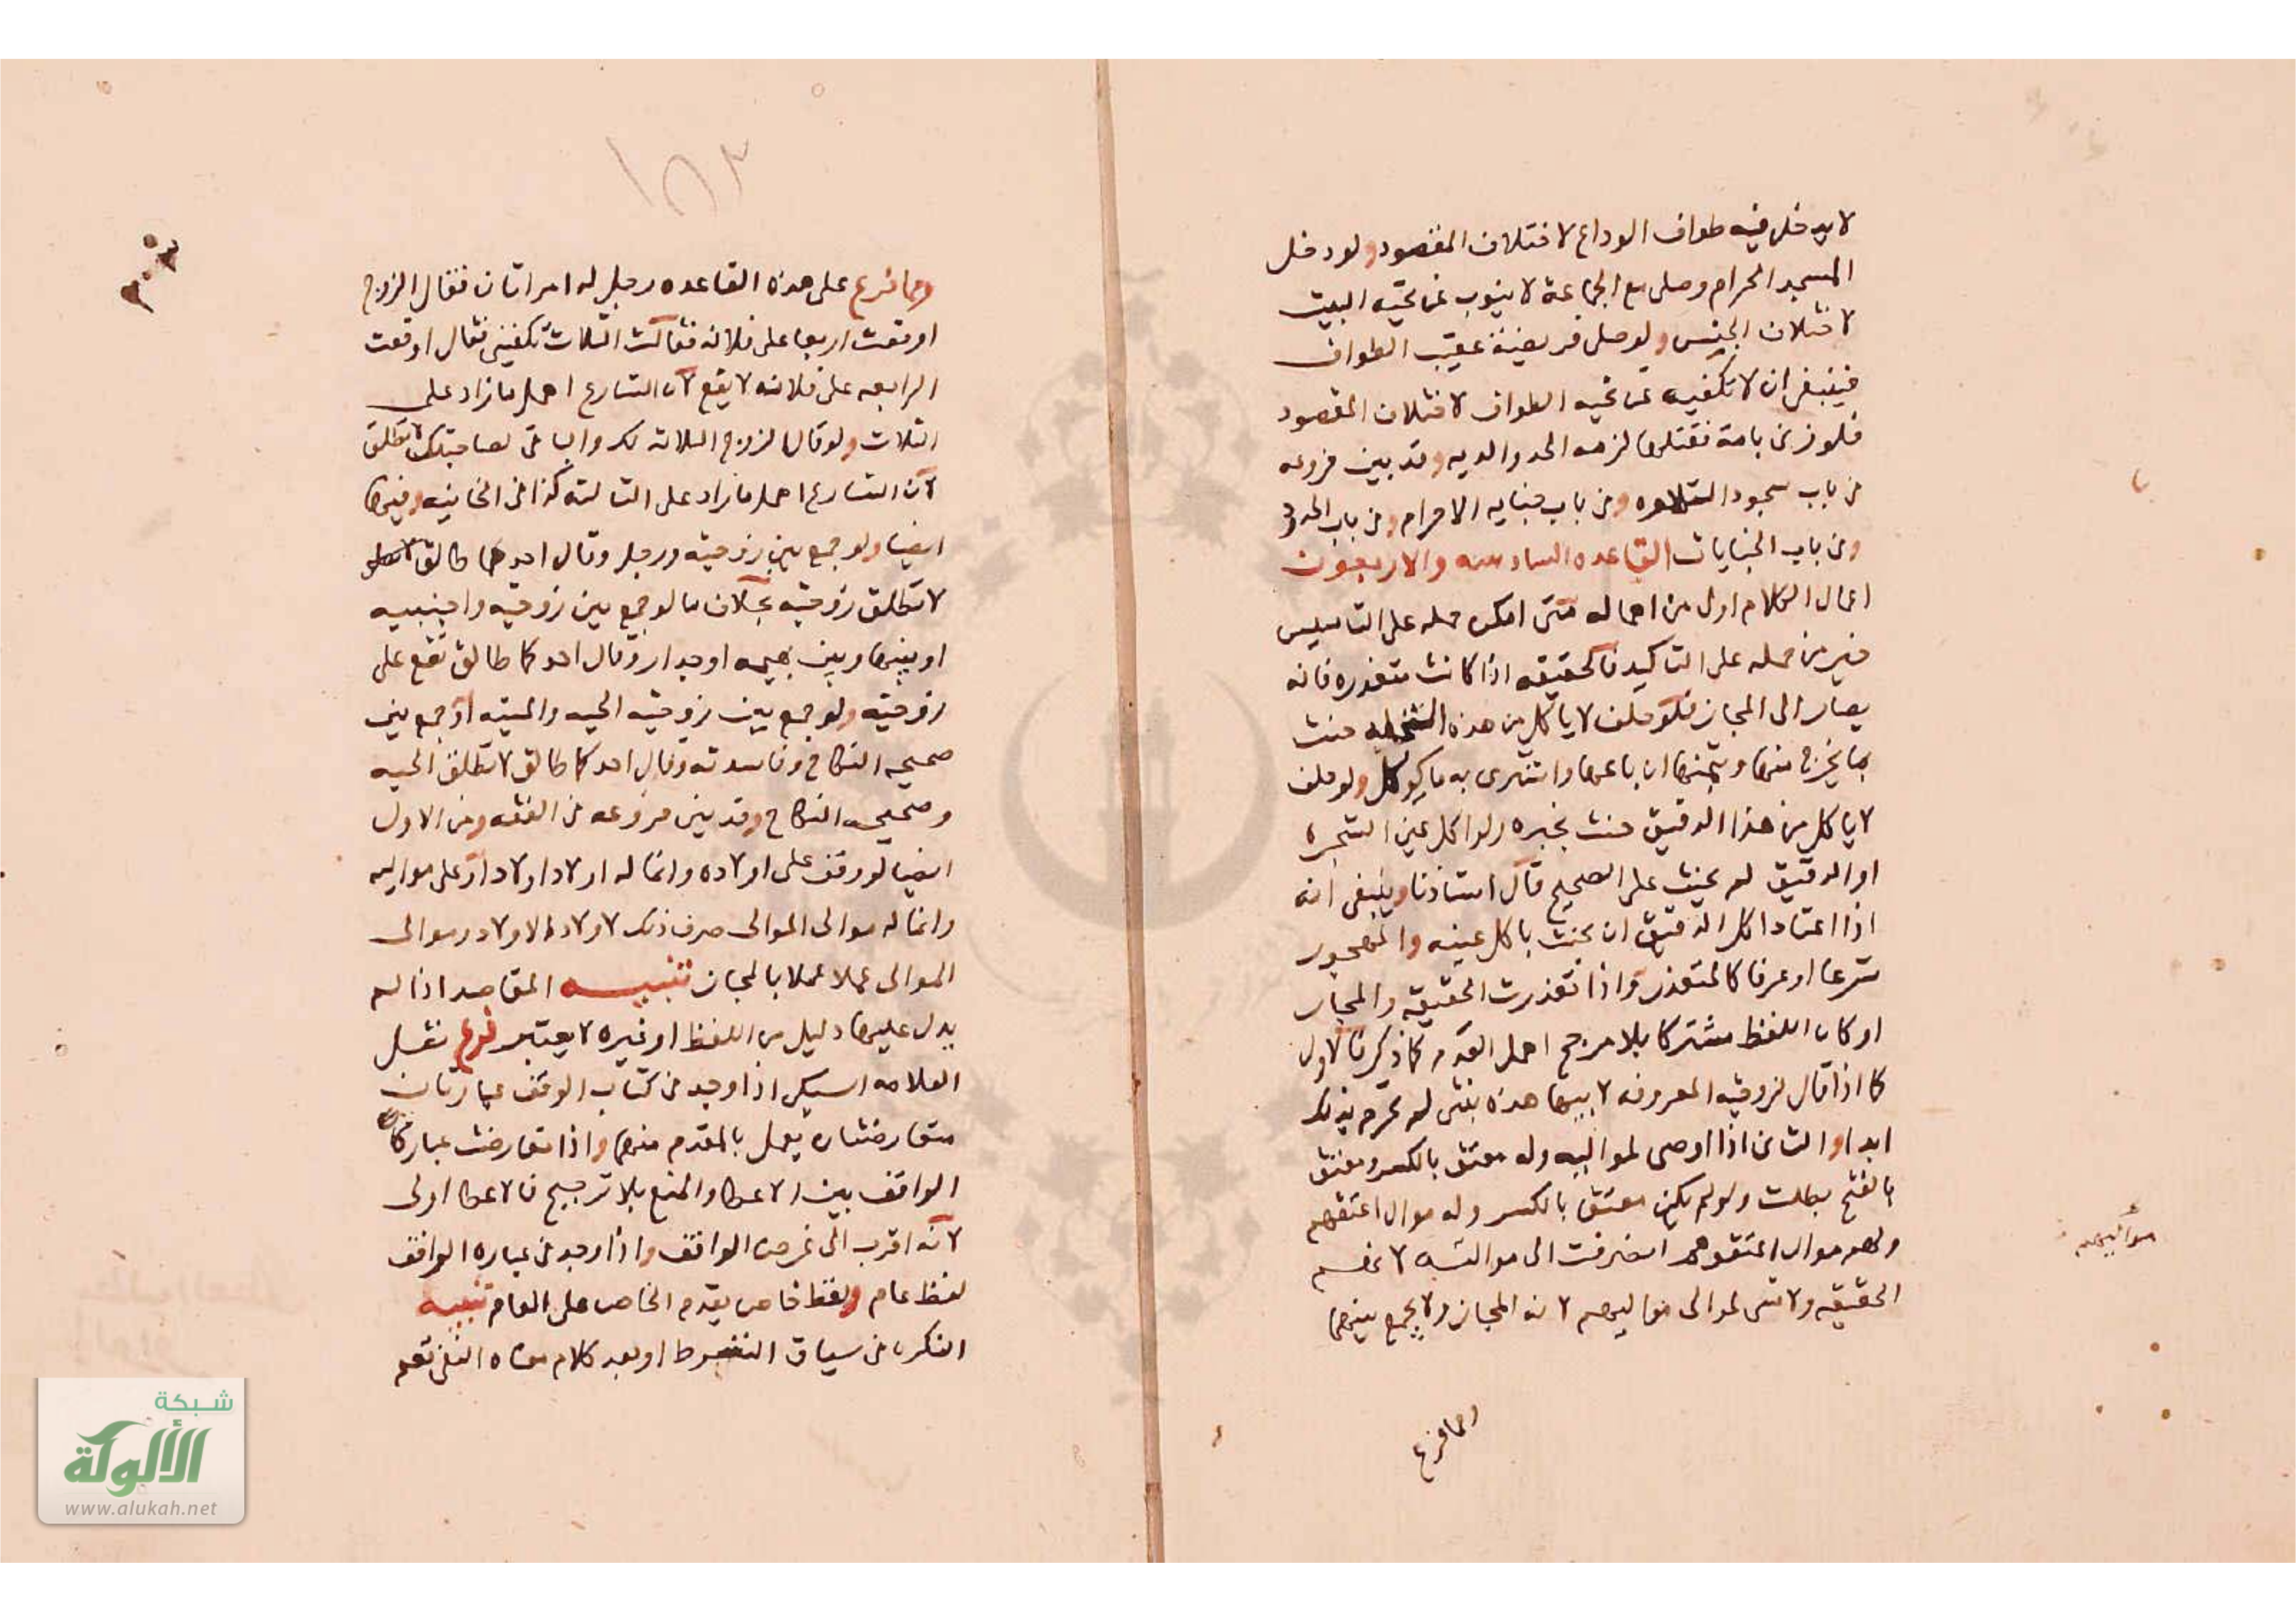 لا يدخل فيه طواف الوداع لاختلاف المقصود ولو دخل
المسجد الحرام وصلى مع الجماعة لا ينوب عن تحيه البيت
لاختلاف الجنس ولو صلى فريضة عقيب الطواف
فينبغي ان لا تكفيه عن تحيه الطواف لاختلاف المقصود
فلو زنى بامة فقتلها لزمه الحد والديه وقد بين فروعه
في باب سجود التلاوه وفي باب جنايه الاحرام وفي باب الحدود
وفي باب الجنايات القاعده السادسه والاربعون
اعمال الكلام اولى من اهماله متى امكن حمله على التاسيس
خير من حمله على التاكيد فالحقيقه اذا كانت متعذره فانه
يصار الى المجاز فلو حلف لا ياكل من هذه النخله حنث
بما يخرج منها وبثمنها ان باعها واشترى به ماكول ولو حلف
لا ياكل من هذا الدقيق حنث بخبزه ولو اكل عين الشجره
او الدقيق لم يحنث على الصحيح قال استاذنا وينبغي انه
اذا اعتاد اكل الدقيق ان يحنث باكل عينه والمهجور
شرعا او عرفا كالمتعذر واذا تعذرت الحقيقه والمجاز
او كان اللفظ مشتركا بلا مرجح اهمل لعدم كما ذكرنا الاول
كما اذا قال لزوجته المعروفه لابيها هذه بنتي لم تحرم بذلك
ابدا والثاني اذا اوصى لمواليه وله معتق بالكسر ومعتق
بالفتح بطلت ولو لم يكن معتق بالكسر وله موال اعتقهم
ولهم موال اعتقوهم انصرفت الى مواليه لانهم
الحقيقه ولا شي لموالى مواليهم لانه المجاز ولا يجمع بينهما
مواليهم
ومما فرع
١٨٣
ومما فرع على هذه القاعده رجل له امراتان فقال الزوج
اوقعت اربعا على فلانه فقالت الثلاث تكفيني فقال اوقعت
الرابعه على فلانه لا يقع لان الشارع اهمل ما زاد على
الثلاث ولو قال الزوج الثلاث لك والباقي لصاحبتك لا تطلق
لان الشارع اهمل ما زاد على الثالثه كذا في الخانيه وفيها
ايضا ولو جمع بين زوجته ورجل وقال احدكما طالق
لا تطلق زوجته بخلاف ما لو جمع بين زوجته واجنبيه
او بينها وبين بهيمه او جدار وقال احدكما طالق تقع على
زوجته ولو جمع بين زوجته الحيه والميته او جمع بين
صحيحه النكاح وفاسدته وقال احدكما طالق لا تطلق الحيه
وصحيحه النكاح وقد بين فروعه في الفقه ومن الاول
ايضا لو وقف على اولاده وانما له اولاد اولاد او على مواليه
وانما له موالى الموالى صرف ذلك لاولاد الاولاد وموالى
الموالى عملا عملا بالمجاز تنبيه المقاصد اذا لم
يدل عليها دليل من اللفظ او غيره لا يعتبر فرع نقل
العلامه السبكي اذا وجد في كتاب الوقف عبارتان
متعارضتان يعمل بالمقدم منهما واذا تعارضت عبارتا
الواقف بين الاعطا والمنع بلا ترجيح فالاعطا اولى
لانه اقرب الى غرض الواقف واذا وجد في عباره الواقف
لفظ عام ولفظ خاص يقدم الخاص على العام تنبيه
النكره في سياق الشرط او بعد كلام معناه النفي تعم
شبكة
الألوكة
www.alukah.net